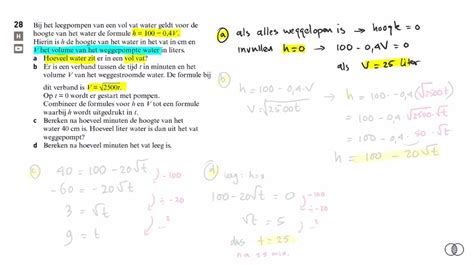 28 Bij het leegpompen van een vol vat water geldt voor de
H hoogte van het water de formule h = 100 − 0,4V.
Hierin is h de hoogte van het water in het vat in cm en
V het volume van het weggepompte water in liters.
a Hoeveel water zit er in een vol vat?
b Er is een verband tussen de tijd t in minuten en het
volume V van het weggestroomde water. De formule bij
dit verband is V = √2500t.
Op t = 0 wordt er gestart met pompen.
Combineer de formules voor h en V tot een formule
waarbij h wordt uitgedrukt in t.
c Bereken na hoeveel minuten de hoogte van het
water 40 cm is. Hoeveel liter water is dan uit het vat
weggepompt?
d Bereken na hoeveel minuten het vat leeg is.
a) als alles weggelopen is → hoogte = 0
invullen h=0 → 100 - 0,4V = 0
als V = 25 liter
b) h = 100 - 0,4·V
V = √2500t
→ h = 100 - 0,4·√2500t
h = 100 - 0,4·√2500·√t
h = 100 - 0,4·50·√t
h = 100 - 20√t
c) 40 = 100 - 20√t
-60 = -20√t
3 = √t
9 = t
-100
÷ -20
...²
d) leeg: h=0
100 - 20√t = 0
√t = 5
dus t = 25
na 25 min.
-100
÷ -20
...²